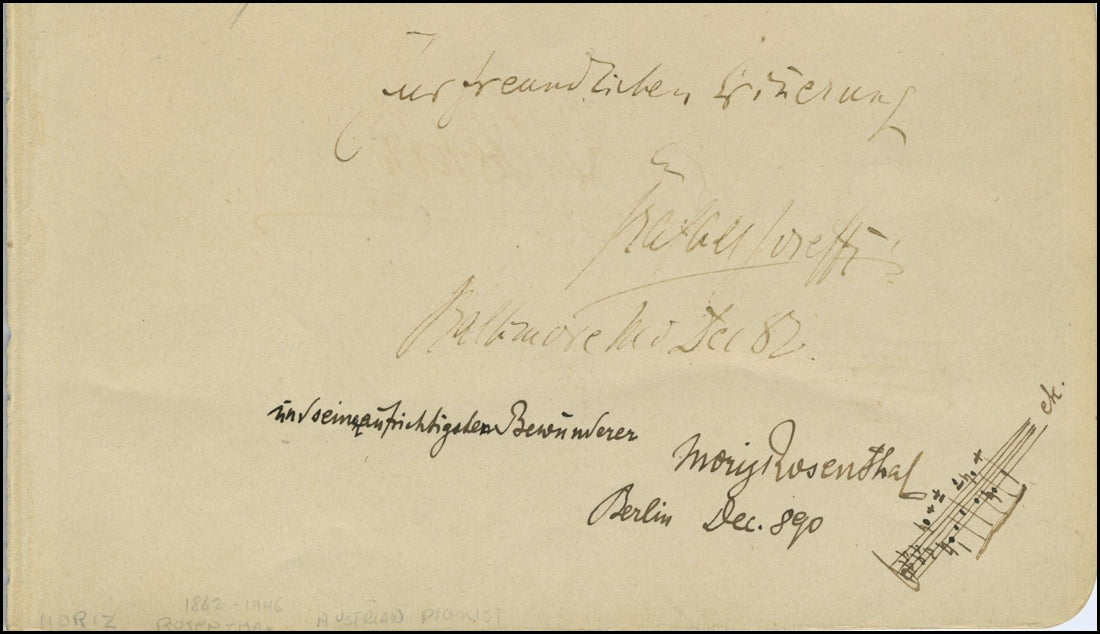 Zur freundlichen Erinerung
an
Rafael Joseffy
Baltimore Md Dec 82.
und seinen aufrichtigsten Bewunderer
Moriz Rosenthal
Berlin Dec. 890
etc.
1862 - 1946
MORIZ ROSENTHAL AUSTRIAN PIANIST